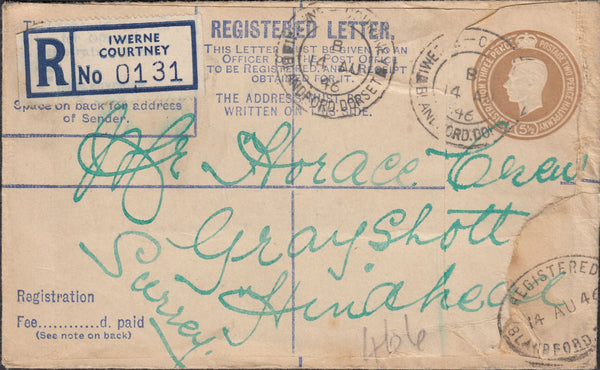 REGISTERED LETTER,
THIS LETTER MUST BE GIVEN TO AN
OFFICER OF THE POST OFFICE
TO BE REGISTERED, AND A RECEIPT
OBTAINED FOR IT.
THE ADDRESS MUST BE
WRITTEN ON THIS SIDE.
R
IWERNE
COURTNEY
No 0131
Space on back for address
of Sender.
IWERNE
B
14 AU
46
BLANDFORD. DORSET
IWERNE
B
14
46
BLANDFORD. DO
REGISTRATION THREE PENCE
POSTAGE TWO PENCE HALFPENNY
5½D
Mr Horace
Grayshott
Hindhead
Surrey.
Registration
Fee............d. paid
(See note on back)
466
REGISTERED
14 AU 46
BLANDFORD